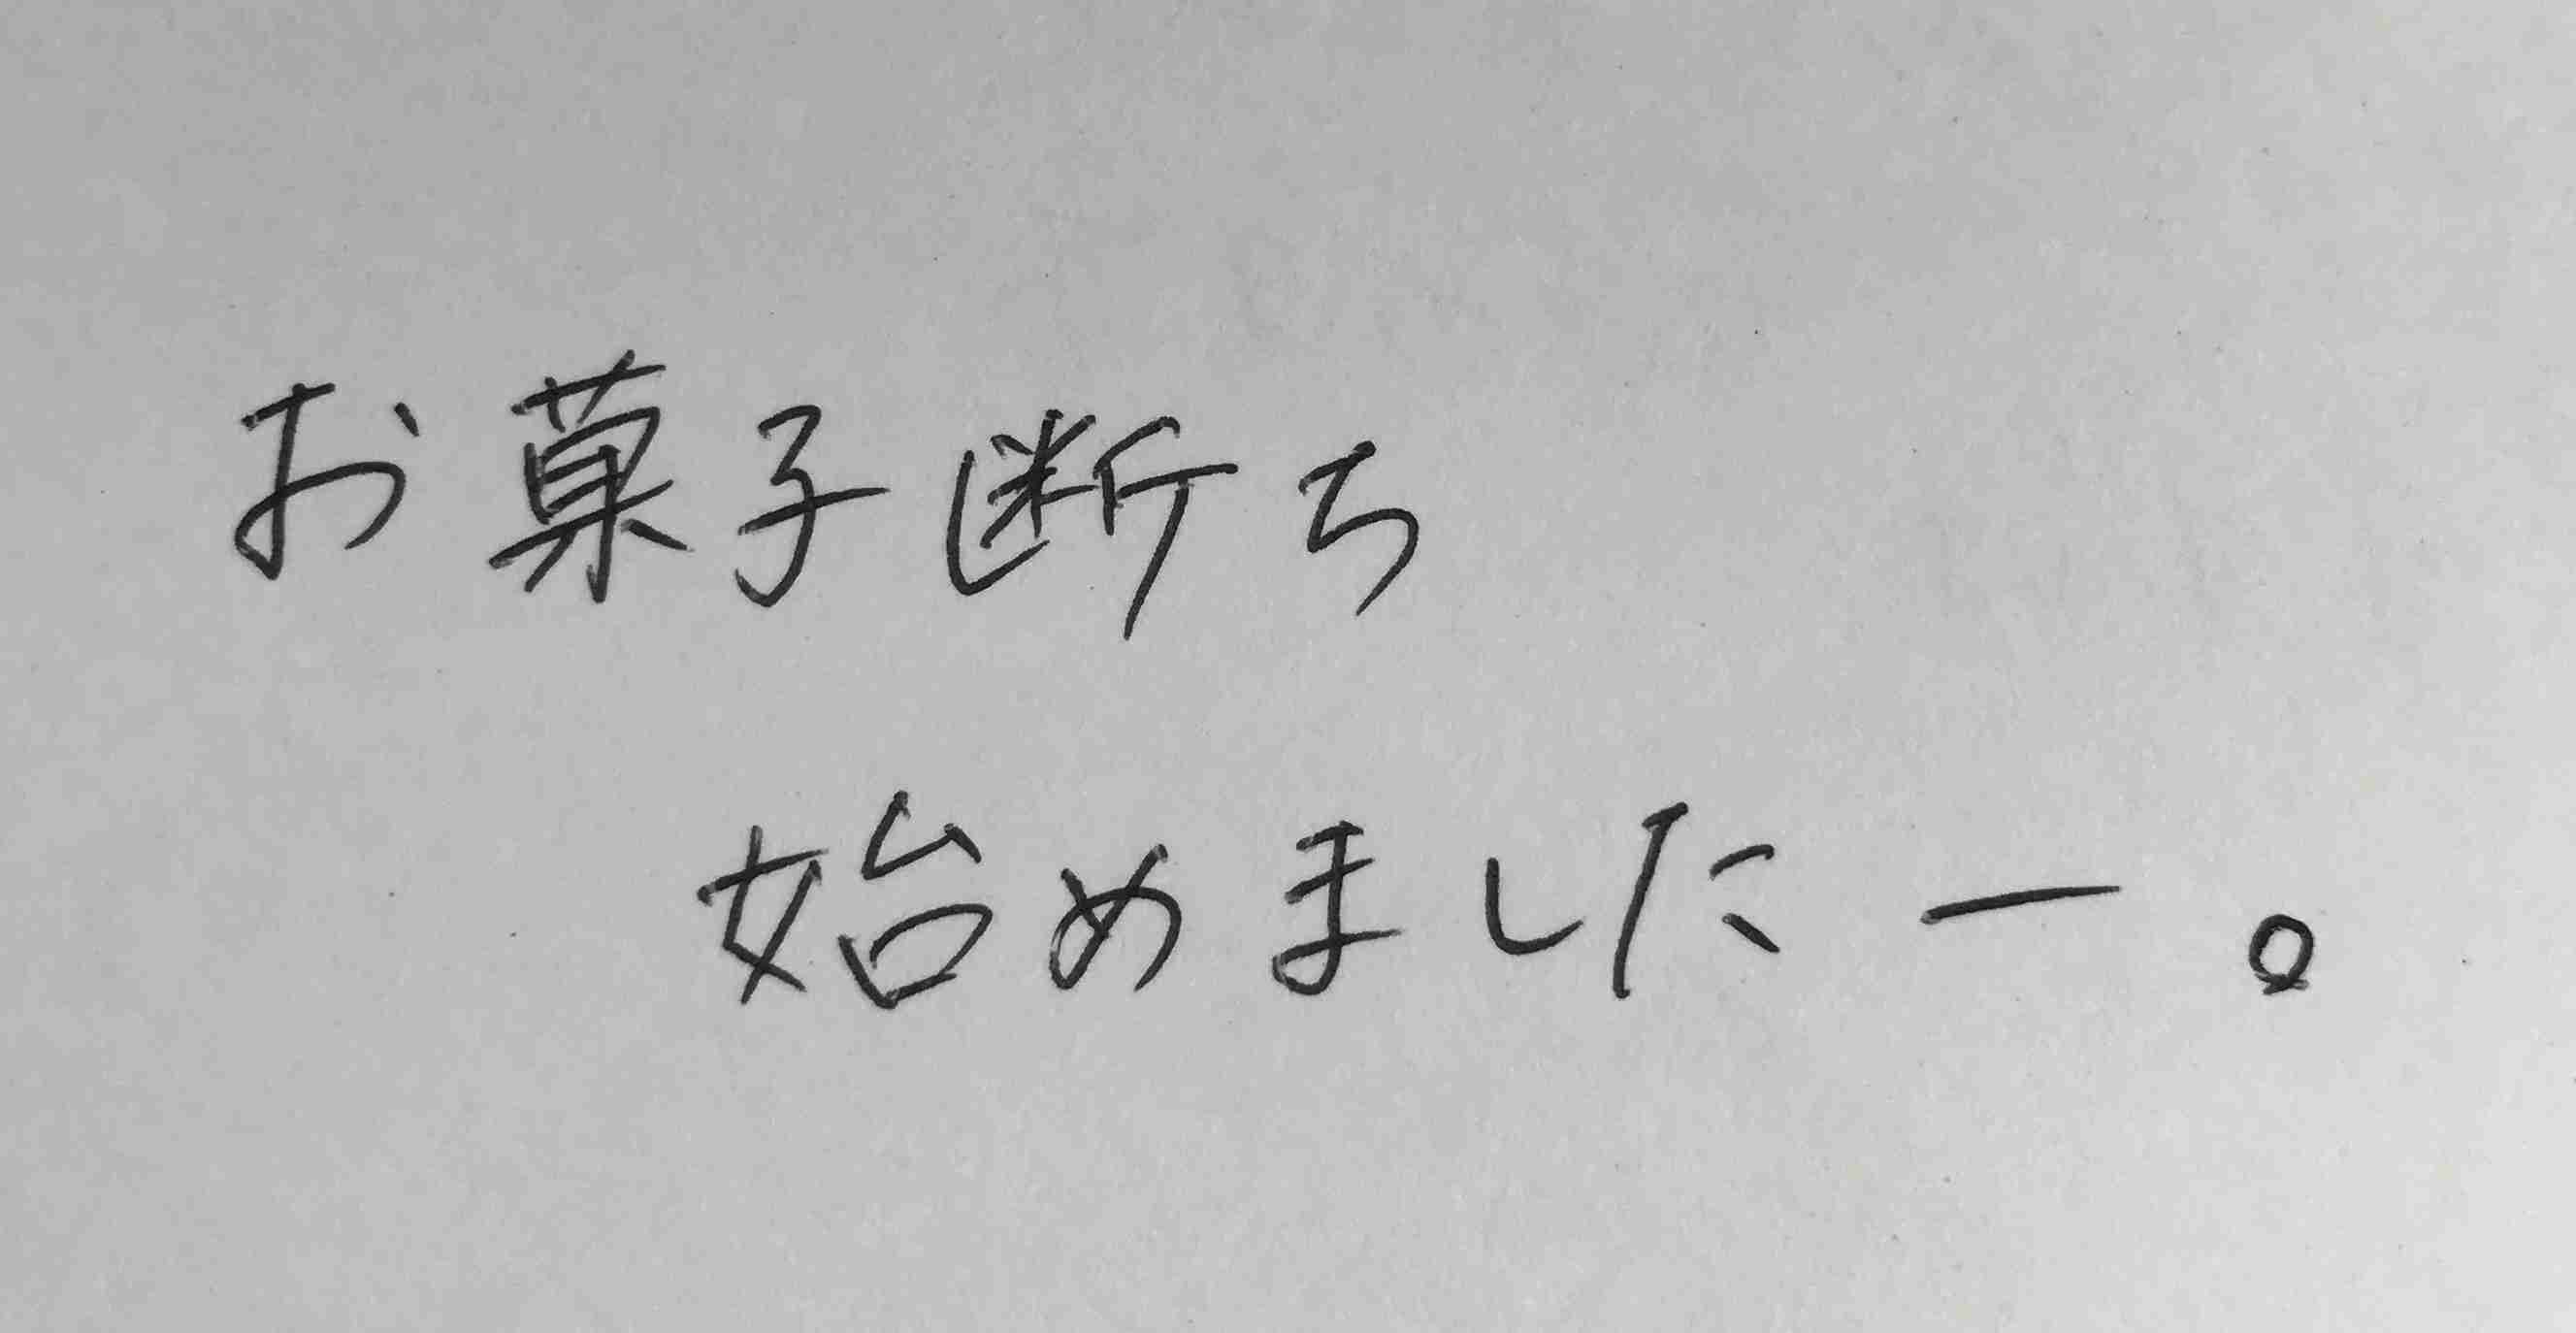 お菓子断ち
始めましたー。